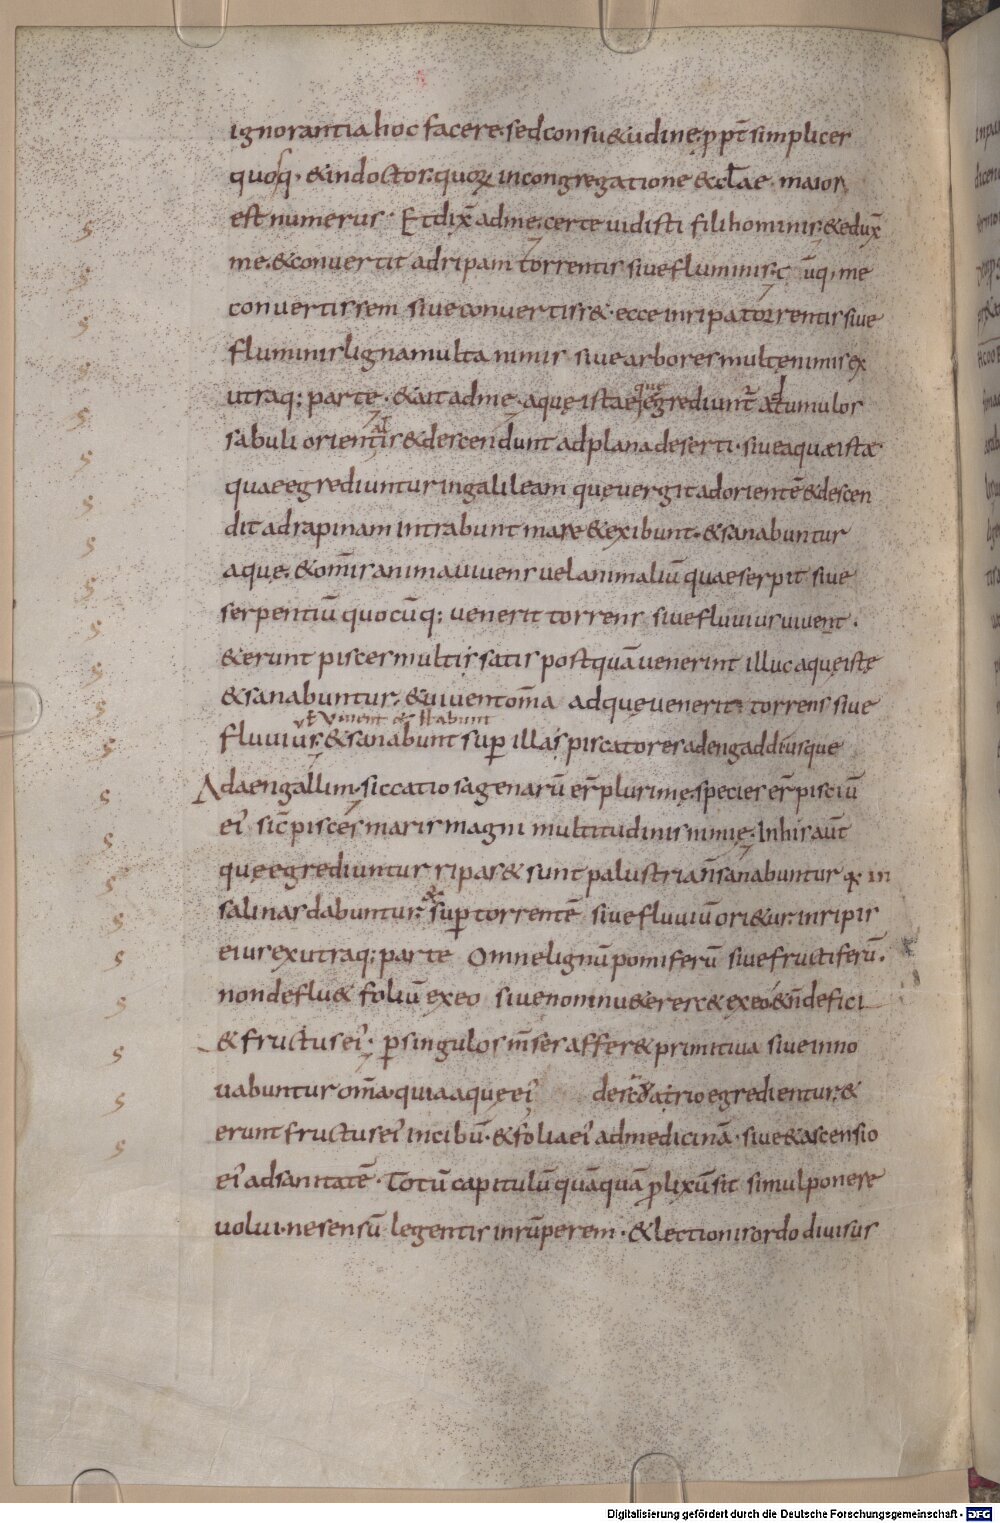 ignorantia hoc facere· sed consu&udine, ꝓpt̄ simplicer
quosq· & indoctor: quoꝝ in congregatione eccl̄ae maior
est numerus· Et dix̄ ad me, certe uidisti fili hominis; & edux̄
me, & convertit ad ripam torrentis sive fluminis; c ūq; me
convertissem sive convertiss&· ecce in ripa torrentis sive
fluminis ligna multa nimis sive arbores multę nimis ex
utraq; parte· & ait ad me, aquę istae que egrediunt̄ ad tumulos
sabuli orientis & descendunt ad plana deserti· sive aquæ istæ
quae egrediuntur in galileam quę vergit ad orientē & descen
dit ad rapinam intrabunt mare & exibunt· & sanabuntur
aquę. & om̄is anima vivens vel animaliū quae serpit sive
serpentiū quocūq; venerit torrens sive fluvius vivent·
& erunt pisces multis satis postquā venerint illuc aquę istę
& sanabuntur; & vivent om̄a ad quę venerit; torrens sive
v̄t vivent & stabunt
fluvius; & sanabunt suꝑ illas piscatores ad engaddi usque
Ad aengallim· siccatio sagenarū er̄ plurimę, species er̄ pisciū
ei' sic̄ pisces maris magni multitudinis nimię. In his aūt
quę egrediuntur ripas & sunt palustria n̄ sanabuntur q; in
salinas dabuntur; & suꝑ torrentē sive fluviū ori&ur in ripis
eius ex utraq; parte Omne lignū pomiferū sive fructiferū.
non deflu& foliū ex eo sive non inu&eresc& ex eo· & n̄ defici
& fructus ei'· ꝑ singulos m̄ses affer& primitiua sive inno
vabuntur om̄a· quia aquę ei' de sc̄ōatrio egredientur; &
erunt fructus ei' in cibū· & folia ei' ad medicinā· sive & ascensio
ei' ad sanitatē· Totū capitulū quāquā ꝓlixū sit simul ponere
volui· ne sensū legentis inrūperem· & lectionis ordo divisus
Digitalisierung gefördert durch die Deutsche Forschungsgemeinschaft - DFG